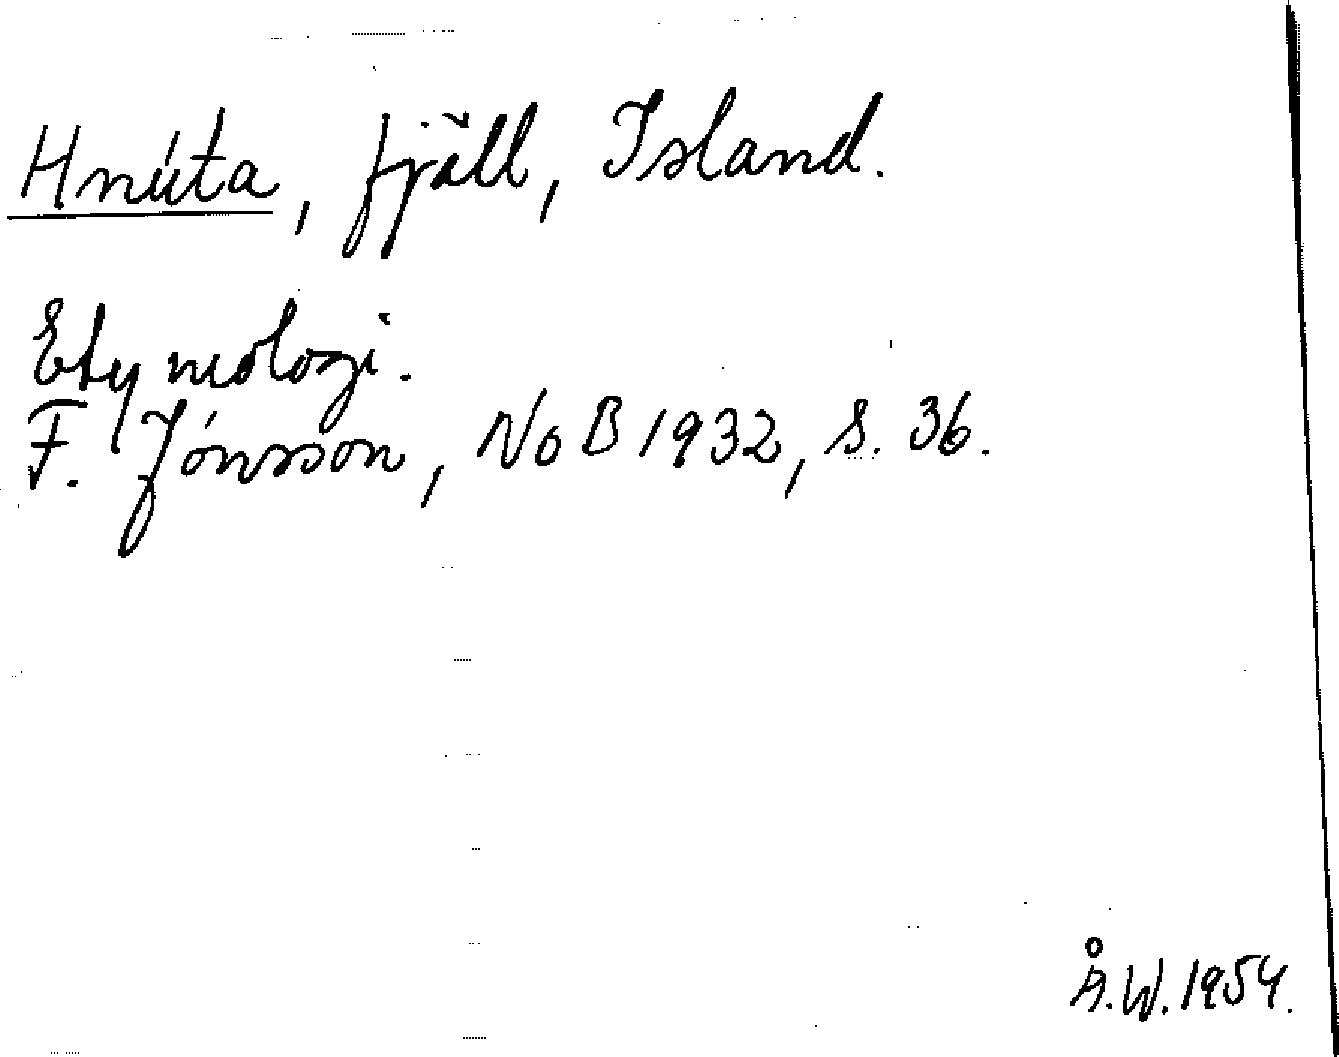 Hnúta, fjäll, Island.
Etymologi.
F. Jónsson, NoB 1932, s. 36.
Å.W. 1954.